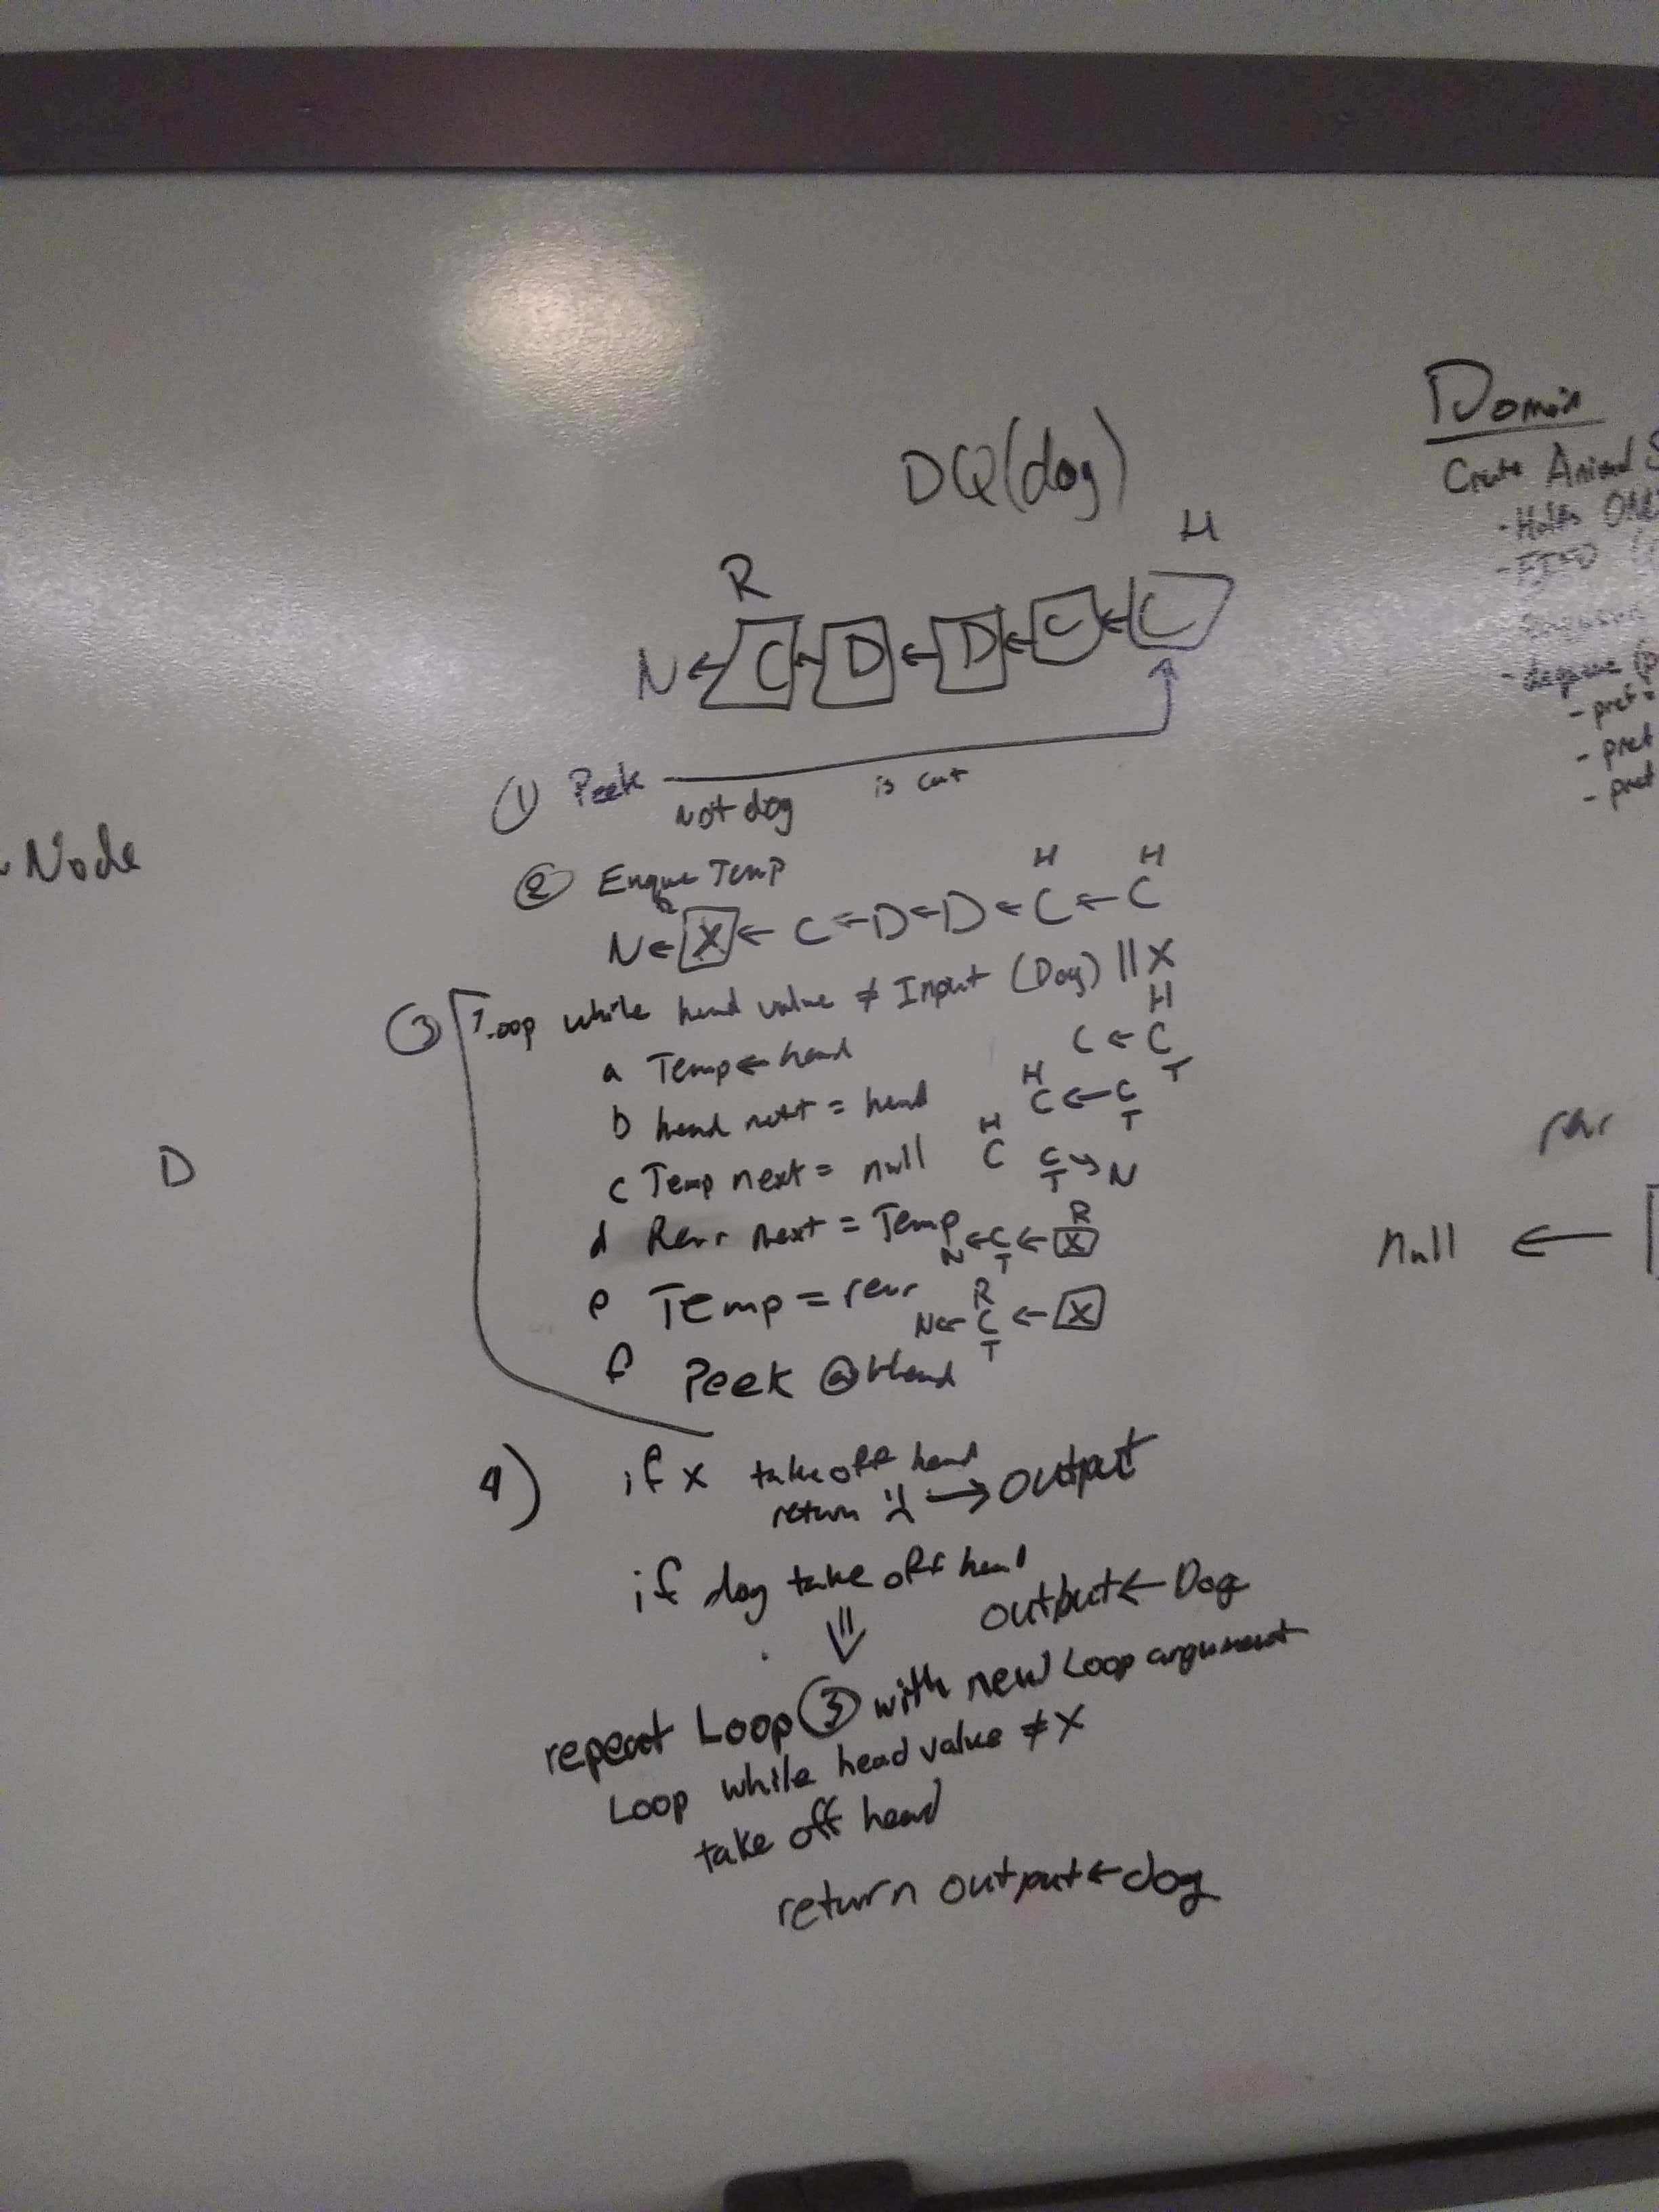 DQ(dog)
H
R
N ← C ← D ← D ← C ← C
① Peek
Not dog is cat
② Enque Temp
H H
N ← X ← C ← D ← D ← C ← C
③ Loop while head value ≠ Input (Dog) || X
H
a Temp ← head C ← C
T
H
b head next = head C ← C
T
H
c Temp next = null C C → N
T
R
d Rear next = Temp N ← C ← X
T
R
e Temp = rear N ← C ← X
T
f Peek @ Head
4) if x take off head
return :( → output
if dog take off head
output ← Dog
⇓
repeat Loop ③ with new Loop argument
Loop while head value ≠ X
take off head
return output ← dog
Node
D
Domain
Create Animal S
- Holds
- FIFO
- dequeue (p
- pref
- pref
- pref
rear
null ←